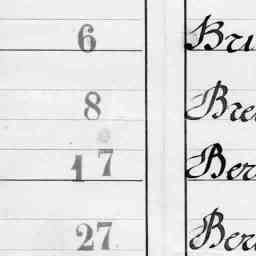 6 Bru
8 Bre
17 Ber
27 Ber